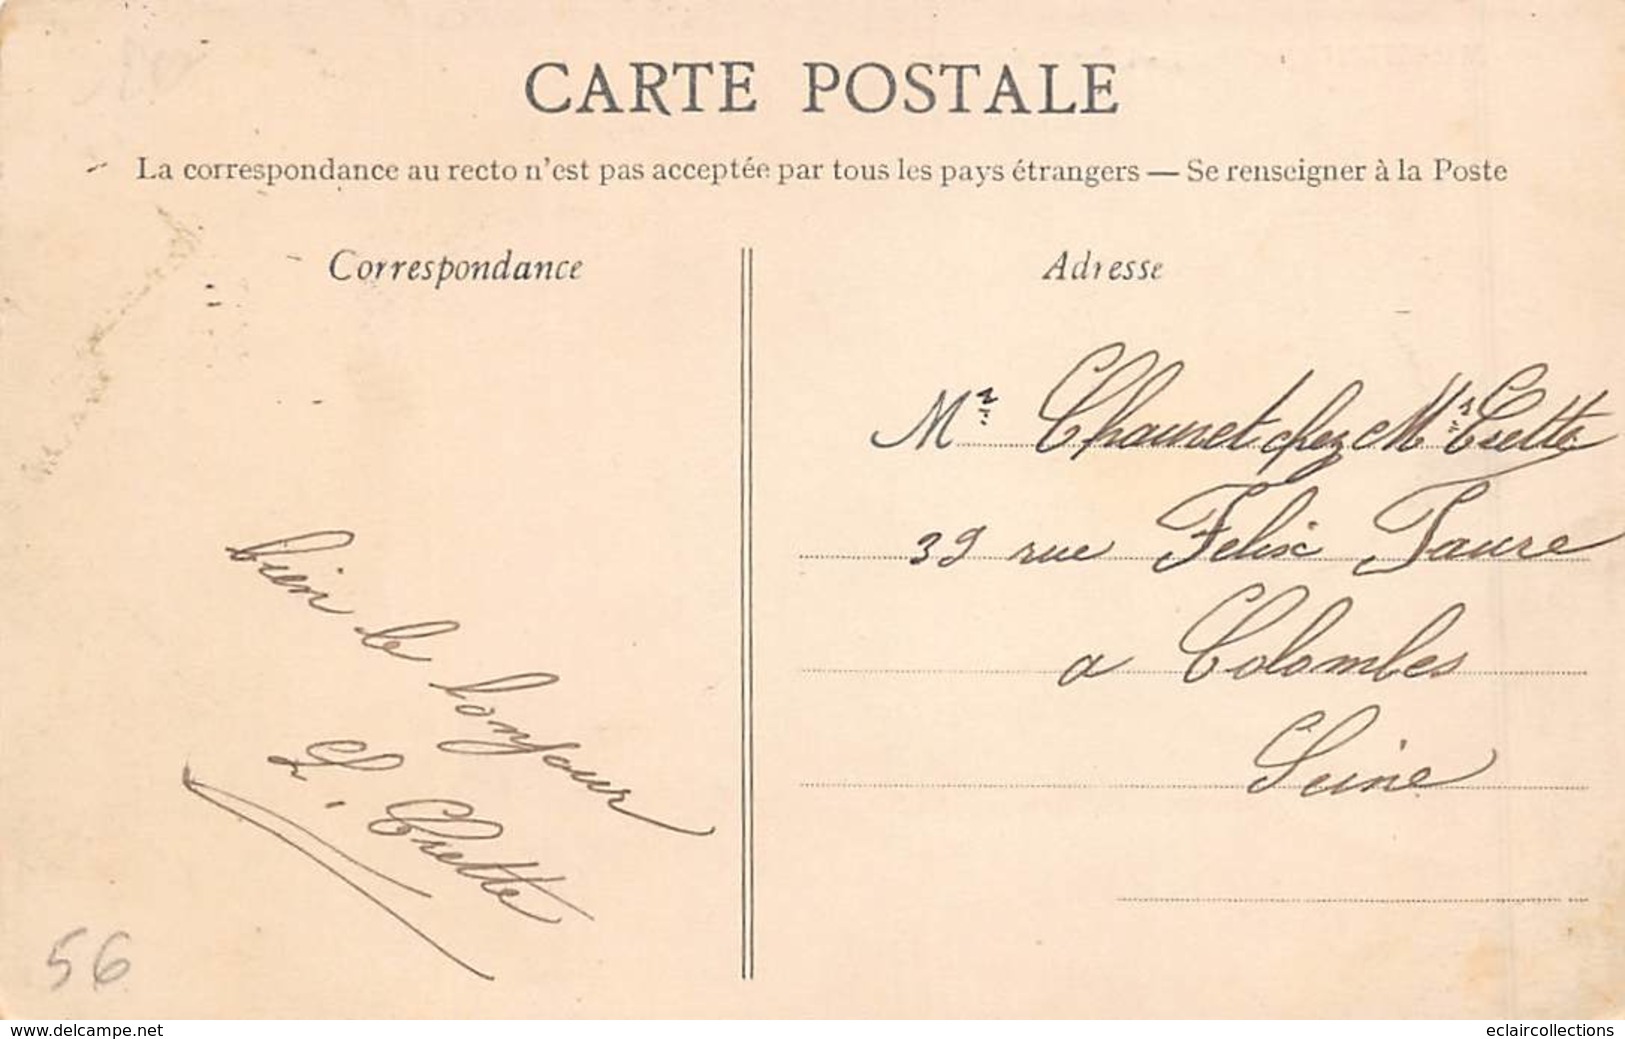 CARTE POSTALE
La correspondance au recto n'est pas acceptée par tous les pays étrangers — Se renseigner à la Poste
Correspondance
Adresse
Mr Chaunet chez Mr Crette
39 rue Felix Faure
a Colombes
Seine
bien le bonjour
L. Crette
56
www.delcampe.net
eclaircollections